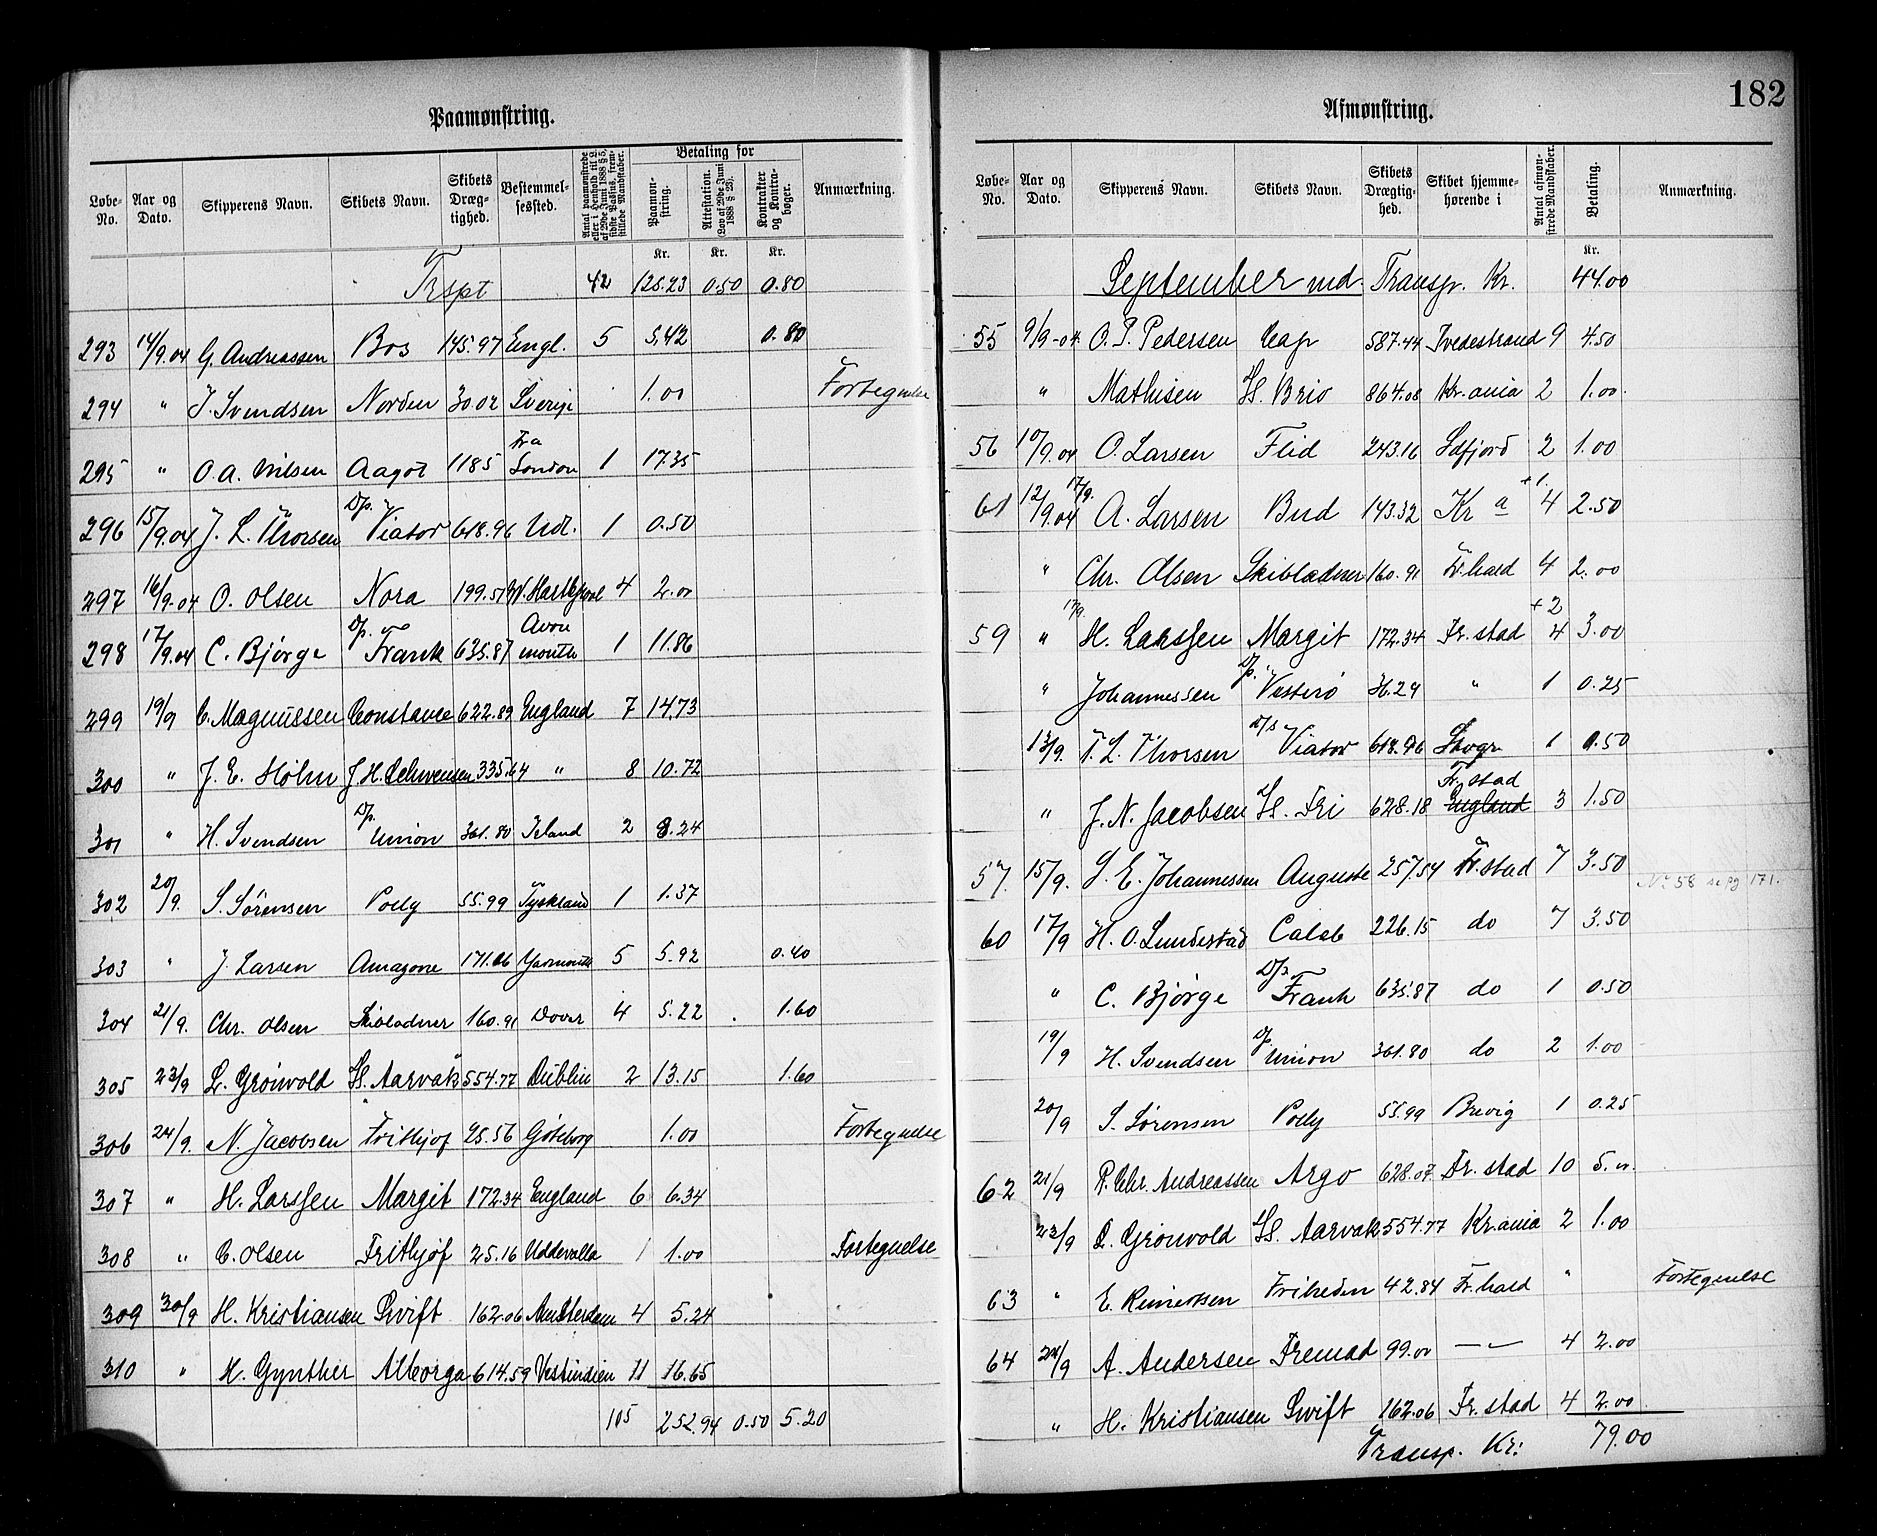 182
Paamønstring.
Løbe-No. Aar og Dato. Skipperens Navn. Skibets Navn. Skibets Dræg-tighed. Bestemmel-sessted. Antal paamønstrede eller i Henhold til L. af 29de Juni 1888 § 5, sidste Passus, frem-stillede Mandskaber. Betaling for Paamøn-string. Attestation. (Lov af 29de Juni 1888 § 23). Kontrakter og Kontra-bøger. Anmærkning.
Kr. Kr. Kr.
Trspt 42 125.23 0.50 0.80
293 14/9.04 G. Andreassen Bos 145.97 Engl. 5 5.42 0.80
294 " J. Svendsen Norden 30.02 Sverige 1.00 Fortegnelse
295 " O. A. Nilsen Aagot 1185 Fra London 1 17.35
296 15/9.04 J. L. Thorsen D/p. Viator 618.96 Udl. 1 0.50
297 16/9.04 O. Olsen Nora 199.51 W. Hartlepool 4 2.00
298 17/9.04 C. Bjørge D/p. Frank 635.87 Avonmouth 1 11.86
299 19/9 C. Magnussen Constance 622.89 England 7 14.73
300 " J. E. Holm J. H. Schwensen 335.64 " 8 10.72
301 " H. Svendsen D/p. Union 361.80 Island 2 8.24
302 20/9. S. Sørensen Polly 55.99 Tyskland 1 1.37
303 " J. Larsen Amazone 171.06 Yarmouth 5 5.92 0.40
304 21/9. Chr. Olsen Skibladner 160.91 Dover 4 5.22 1.60
305 23/9 L. Grönvold H. Aarvak 554.77 Dublin 2 13.15 1.60
306 24/9. N. Jacobsen Frithjof 25.56 Göteborg 1.00 Fortegnelse
307 " H. Larssen Margit 172.34 England 6 6.34
308 " C. Olsen Frithjof 25.16 Uddevalla 1 1.00 Fortegnelse
309 30/9 H. Kristiansen Swift 162.06 Amsterdam 4 5.24
310 " H. Gynther Alborga 614.59 Vestindien 11 16.65
105 252.94 0.50 5.20
Afmønstring.
Løbe-No. Aar og Dato. Skipperens Navn. Skibets Navn. Skibets Drægtig-hed. Skibet hjemme-hørende i Antal afmøn-strede Mandskaber. Betaling. Anmærkning.
Kr.
September md. Transp. Kr. 44.00
55 9/9-04. O. P. Pedersen Cap 587.44 Tvedestrand 9 4.50
" Mathisen H. Brio 864.08 Kr.ania 2 1.00
56 10/9.04 O. Larsen Flid 243.16 Ldfjord 2 1.00
61 12/9.04 17/9. A. Larsen Bud 143.32 Kr a +1. 4 2.50
" Chr. Olsen Skibladner 160.91 Fr.hald 4 2.00
59 " 17/9. H. Larssen Margit 172.34 Fr.stad +2 4 3.00
" Johannessen D/p. Vesterö 36.24 " 1 0.25
13/9. T. L. Thorsen D/s Viator 618.96 Stvgr 1 0.50
" J. N. Jacobsen H. Fri 628.18 Fr.stad England 3 1.50
57. 15/9. S. E. Johannessen Auguste 257.54 Fr.stad 7 3.50
No 58 se pg 171.
60 17/9 H. O. Lundestad Caleb 226.15 do 7 3.50
" C. Bjørge D/p Frank 635.87 do 1 0.50
19/9 H. Svendsen D/p. Union 361.80 do 2 1.00
20/9 S. Sørensen Polly 55.99 Brevig 1 0.25
62 21/9 P. Chr. Andreassen Argo 628.07 Fr.stad 10 5.00
23/9 L. Grönvold H. Aarvak 554.77 Kr.ania 2 1.00
63 " E. Reinertsen Friheden 42.84 Fr.hald " Fortegnelse
64 24/9 A. Andersen Fremad 99.00 — " — 4 2.00
" H. Kristiansen Swift 162.06 Fr.stad 4 2.00
Transp. Kr: 79.00